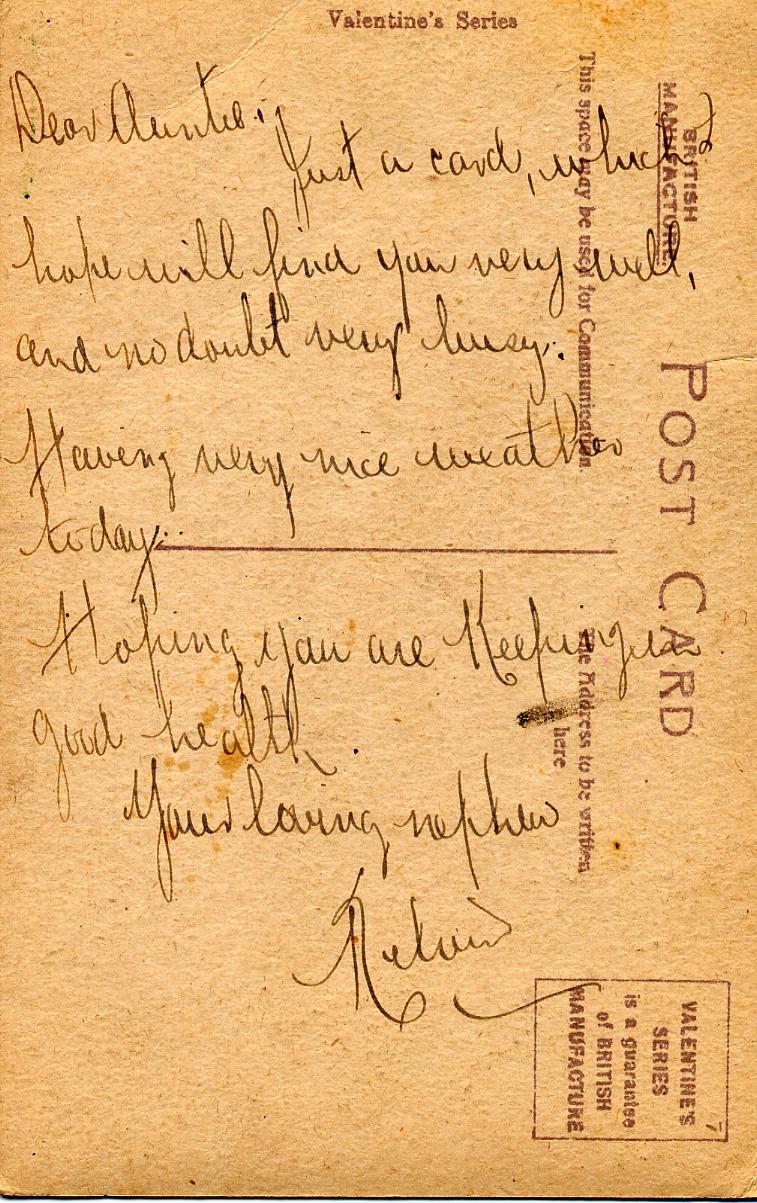 Valentine's Series
Dear Auntie:
Just a card, which I
hope will find you very well,
and no doubt very busy.
Having very nice weather
today.
Hoping you are Keeping in
good health.
Your loving nephew
BRITISH
MANUFACTURE
POST CARD
This space may be used for Communication.
The Address to be written
here
VALENTINE'S
SERIES
is a guarantee
of BRITISH
MANUFACTURE